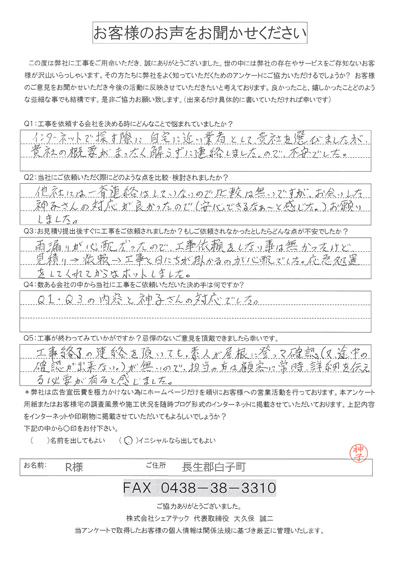 お客様のお声をお聞かせください
この度は弊社に工事をご用命いただき、誠にありがとうございました。世の中には弊社の存在やサービスをご存知ないお客
様が沢山いらっしゃいます。その方たちに弊社をよく知っていただくためのアンケートにご協力いただけるでしょうか？ お客様
のご意見をお聞かせいただき今後の活動に反映させていただきたいと考えております。良かったこと、嬉しかったことどのよう
な些細な事でも結構です。是非ご協力お願い致します。（出来るだけ具体的に書いていただければ幸いです）
Q1：工事を依頼する会社を決める時にどんなことで悩まれていましたか？
インターネットで探す際に自宅に近い業者として貴社を選びましたが、
貴社の概要がまったく解らずに連絡しました。ので、不安でした。
Q2：当社にご依頼いただく際にどのような点を比較・検討されましたか？
他社には一番連絡はしていないので比較は無いですが、お会いした
神子さんの対応が良かったので（安心できるなぁ～と感じた。）お願い
しました。
Q3：お見積り提出後すぐに工事をご依頼されましたか？もしご依頼されなかったとしたらどんな点が不安でしたか？
雨漏りが心配だったので、工事依頼をしない事は無かったけど
見積り→依頼→工事と日にちが掛かるのが心配でした。応急処置
をしてくれてからはホットしました。
Q4：数ある会社の中から当社に工事をご依頼いただいた決め手は何ですか？
Q1・Q3の内容と神子さんの対応でした。
Q5：工事が終わってみていかがですか？忌憚のないご意見を頂戴できましたら幸いです。
工事終了の連絡を頂いても、素人が屋根に登って確認（又、途中の
確認が出来ない。）が無いので、担当の方は顧客に常時、詳細を伝え
る必要が有ると感じました。
＊弊社は広告宣伝費を極力かけない為にホームページだけを頼りにお客様への営業活動を行っております。本アンケート
用紙またはお客様宅の調査風景や施工状況を随時ブログ形式のインターネットに掲載させていただいております。上記内容
をインターネットや印刷物に掲載させていただいてもよろしいでしょうか？
下記の中から○印をお付け下さい。
（ ）名前を出してもよい （○）イニシャルなら出してもよい
神子
お名前： R様 ご住所 長生郡白子町
FAX 0438－38－3310
ご協力ありがとうございました。
株式会社シェアテック 代表取締役 大久保 誠二
当アンケートで取得したお客様の個人情報は関係法規に基づき厳正に管理いたします。